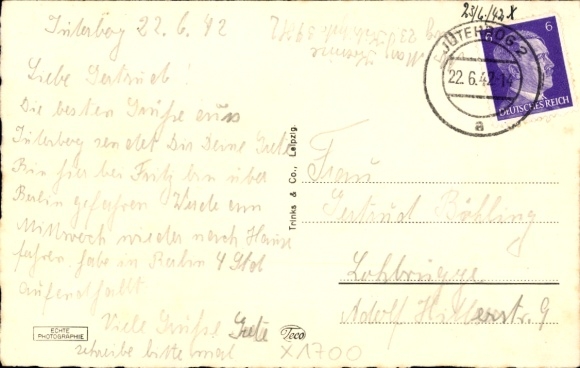 Jüterborg 22.6.42
Liebe Gertrud!
Die besten Grüße aus
Jüterborg sendet Dir Deine Grete
Bin hier bei Fritz bin über
Berlin gefahren Werde am
Mittwoch wieder nach Hause
fahren. habe in Berlin 4 Std
aufenthallt
Viele Grüße Grete
schreibe bitte mal
ECHTE
PHOTOGRAPHIE
Teco
X1700
Trinks & Co., Leipzig.
23/4/42 X
JÜTERBOG 2
22.6.42
a
6
DEUTSCHES REICH
Frau
Gertrud Böhling
Lohbrügge
Adolf Hitlerstr. 9